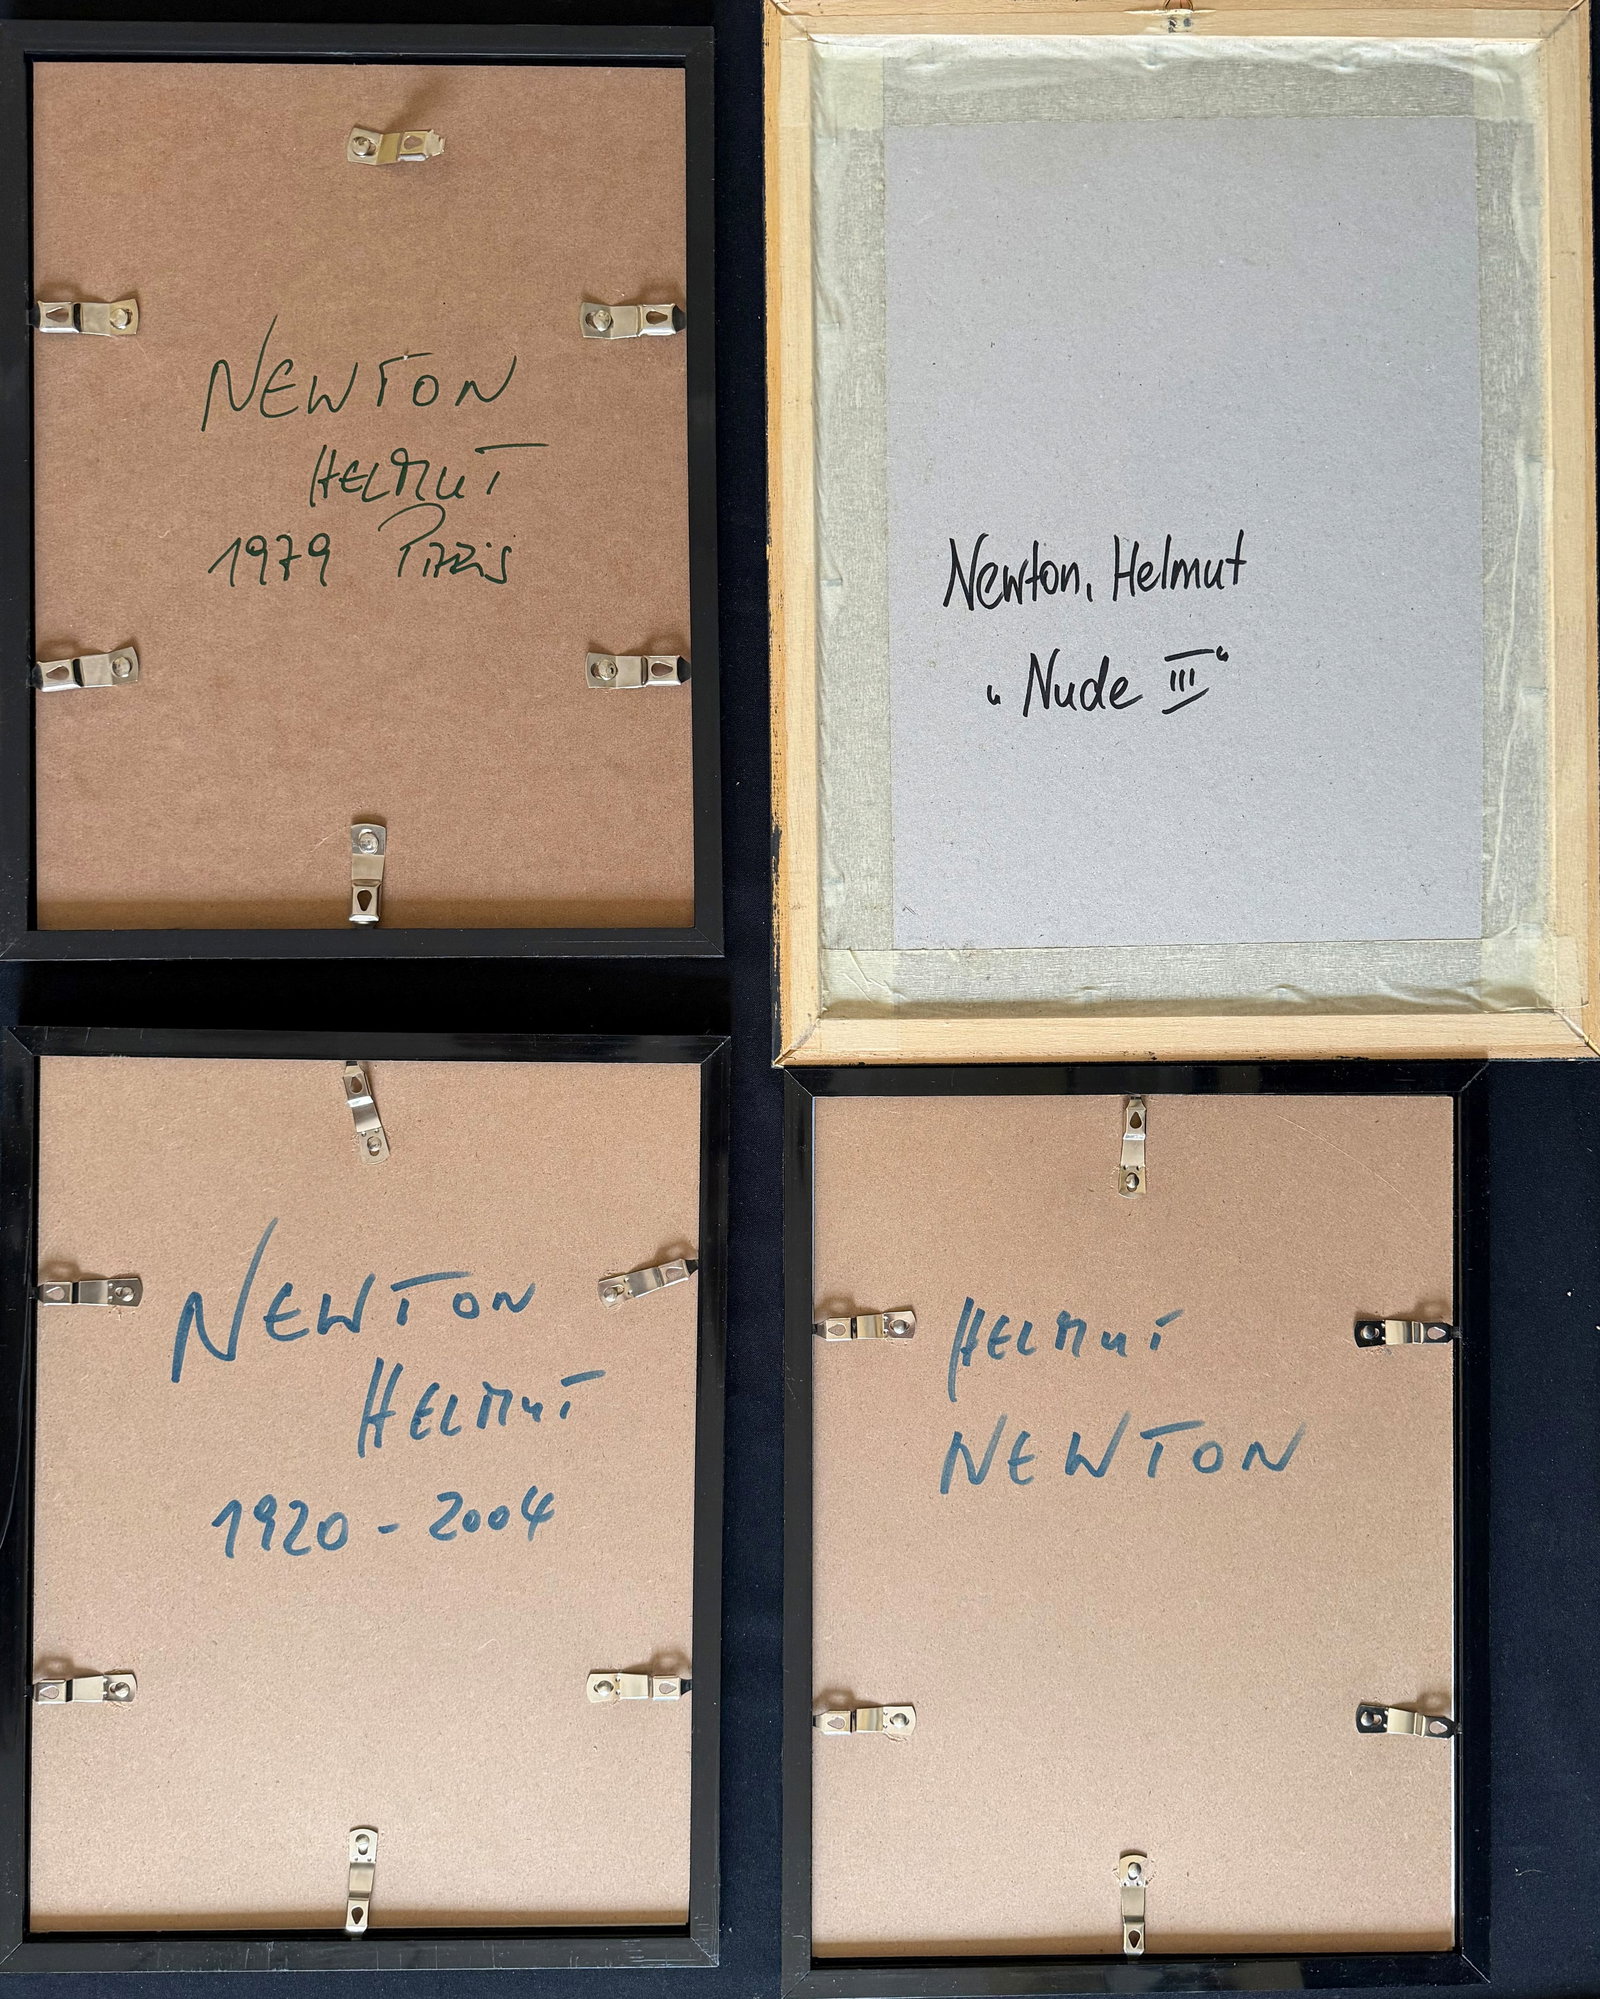 NEWTON
HELMUT
1979 PARiS
Newton, Helmut
"Nude III"
NEWTON
HELMuT
1920 - 2004
HELMuT
NEWTON